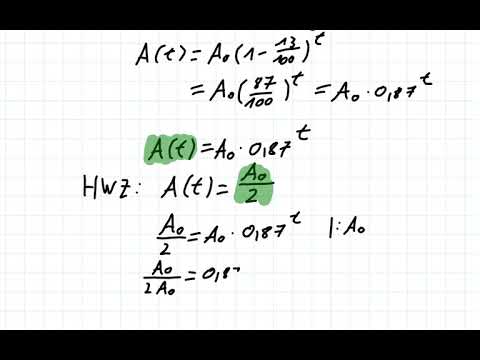 A(t) = A₀(1 - 13/100)^t
= A₀(87/100)^t = A₀ · 0,87^t
A(t) = A₀ · 0,87^t
HWZ: A(t) = A₀/2
A₀/2 = A₀ · 0,87^t |: A₀
A₀/2A₀ = 0,87